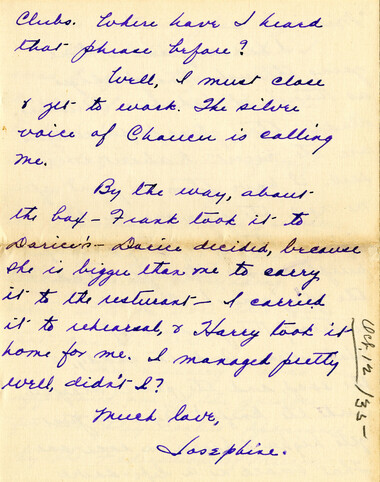 Clubs. Where have I heard
that phrase before?
Well, I must close
& get to work. The silver
voice of Chaucer is calling
me.
By the way, about
the box – Frank took it to
Darice's – Darice decided, because
she is bigger than me to carry
it to the resturant – I carried
it to rehearsal, & Harry took it
home for me. I managed pretty
well, didn't I?
Much love,
Josephine.
Oct, 12 / 35 –